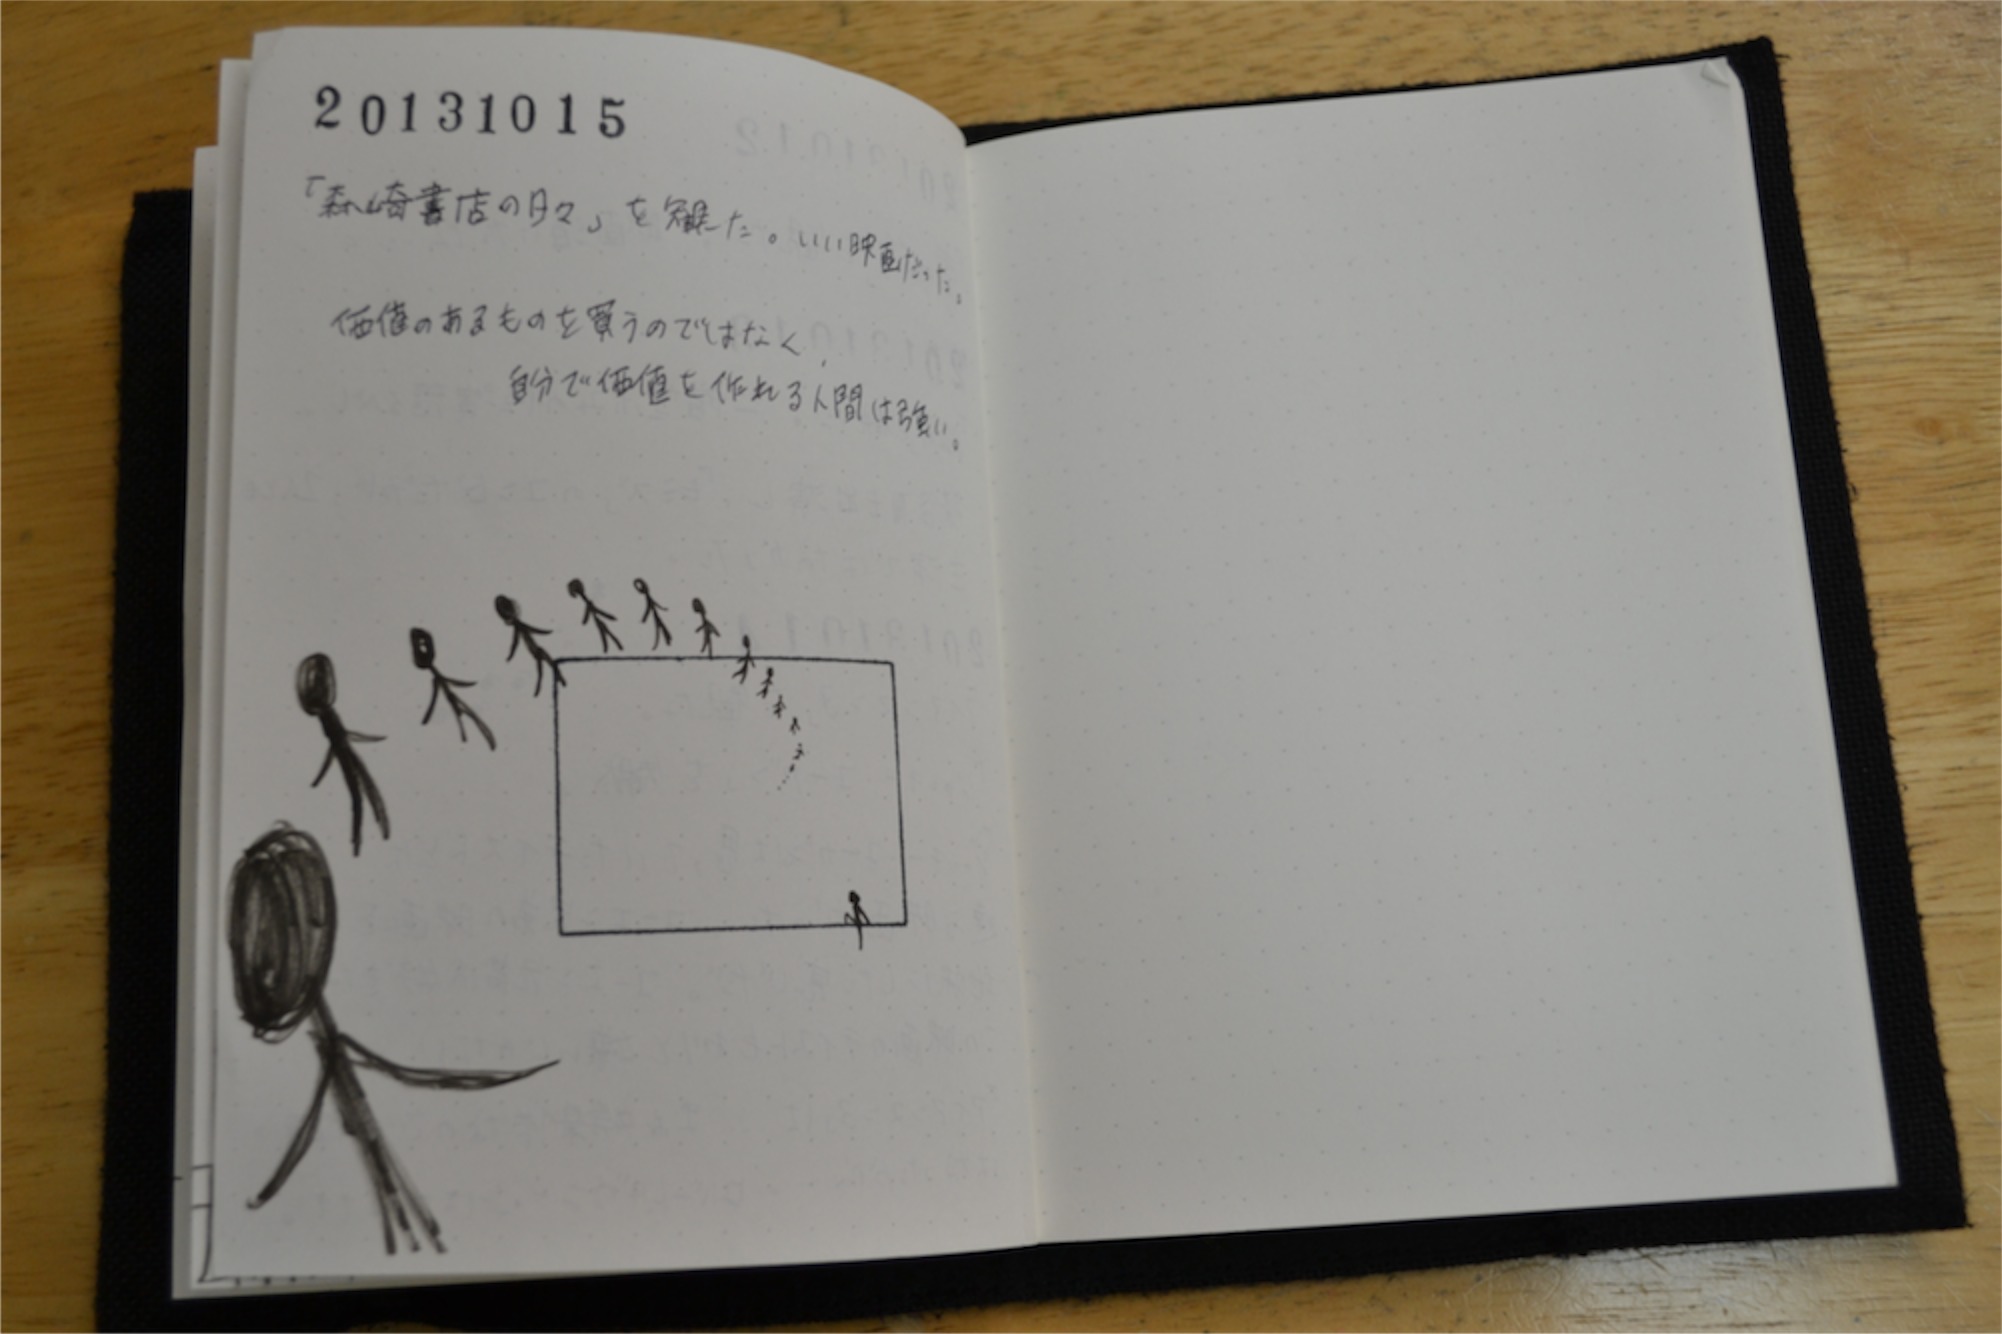 20131015
「森崎書店の日々」を観た。いい映画だった。
価値のあるものを買うのではなく、
自分で価値を作れる人間は強い。